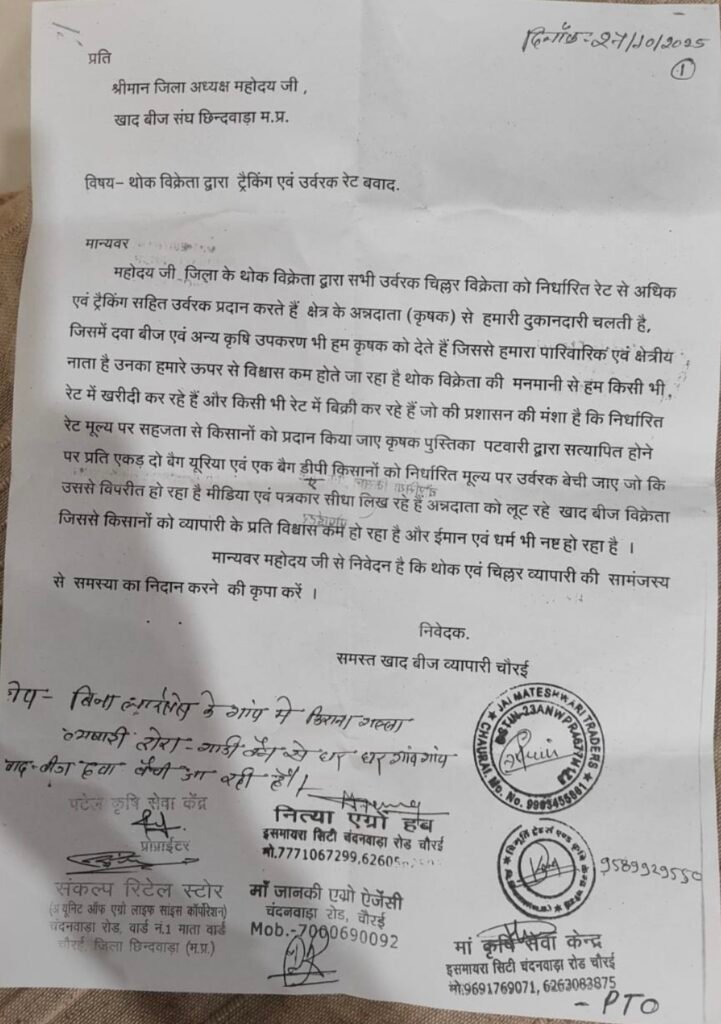 दिनाँक:-27/10/2025
1
प्रति
श्रीमान जिला अध्यक्ष महोदय जी ,
खाद बीज संघ छिन्दवाड़ा म.प्र.
विषय– थोक विक्रेता द्वारा ट्रैकिंग एवं उर्वरक रेट बवाद.
मान्यवर
महोदय जी जिला के थोक विक्रेता द्वारा सभी उर्वरक चिल्लर विक्रेता को निर्धारित रेट से अधिक
एवं ट्रैकिंग सहित उर्वरक प्रदान करते हैं क्षेत्र के अन्नदाता (कृषक) से हमारी दुकानदारी चलती है,
जिसमें दवा बीज एवं अन्य कृषि उपकरण भी हम कृषक को देते हैं जिससे हमारा पारिवारिक एवं क्षेत्रीय
नाता है उनका हमारे ऊपर से विश्वास कम होते जा रहा है थोक विक्रेता की मनमानी से हम किसी भी
रेट में खरीदी कर रहे हैं और किसी भी रेट में बिक्री कर रहे हैं जो की प्रशासन की मंशा है कि निर्धारित
रेट मूल्य पर सहजता से किसानों को प्रदान किया जाए कृषक पुस्तिका पटवारी द्वारा सत्यापित होने
पर प्रति एकड़ दो बैग यूरिया एवं एक बैग डीपी किसानों को निर्धारित मूल्य पर उर्वरक बेची जाए जो कि
उससे विपरीत हो रहा है मीडिया एवं पत्रकार सीधा लिख रहे हैं अन्नदाता को लूट रहे खाद बीज विक्रेता
जिससे किसानों को व्यापारी के प्रति विश्वास कम हो रहा है और ईमान एवं धर्म भी नष्ट हो रहा है ।
मान्यवर महोदय जी से निवेदन है कि थोक एवं चिल्लर व्यापारी की सामंजस्य
से समस्या का निदान करने की कृपा करें ।
निवेदक.
समस्त खाद बीज व्यापारी चौरई
बिना के गांव में किराना गल्ला
व्यापारी गाडी से घर घर गांव गांव
खाद-बीज दवा बैची जा रही है।
JAI MATESHWARI TRADERS
CHAURAI, Mo. No.
पटेल कृषि सेवा केंद्र
प्रोप्राईटर
नित्या एग्रो हब
इसमायरा सिटी चंदनवाड़ा रोड चौरई
मो.7771067299,6260
9589929550
संकल्प रिटेल स्टोर
(अ यूनिट ऑफ एग्रो लाइफ साइंस कॉर्पोरेशन)
चंदनवाड़ा रोड, वार्ड नं.1 माता वार्ड
चौरई, जिला छिन्दवाड़ा (म.प्र.)
माँ जानकी एग्रो ऐजेंसी
चंदनवाड़ा रोड, चौरई
Mob.-7000690092
मां कृषि सेवा केन्द्र
इसमायरा सिटी चंदनवाड़ा रोड चौरई
मो.9691769071, 6263083875
- PTO